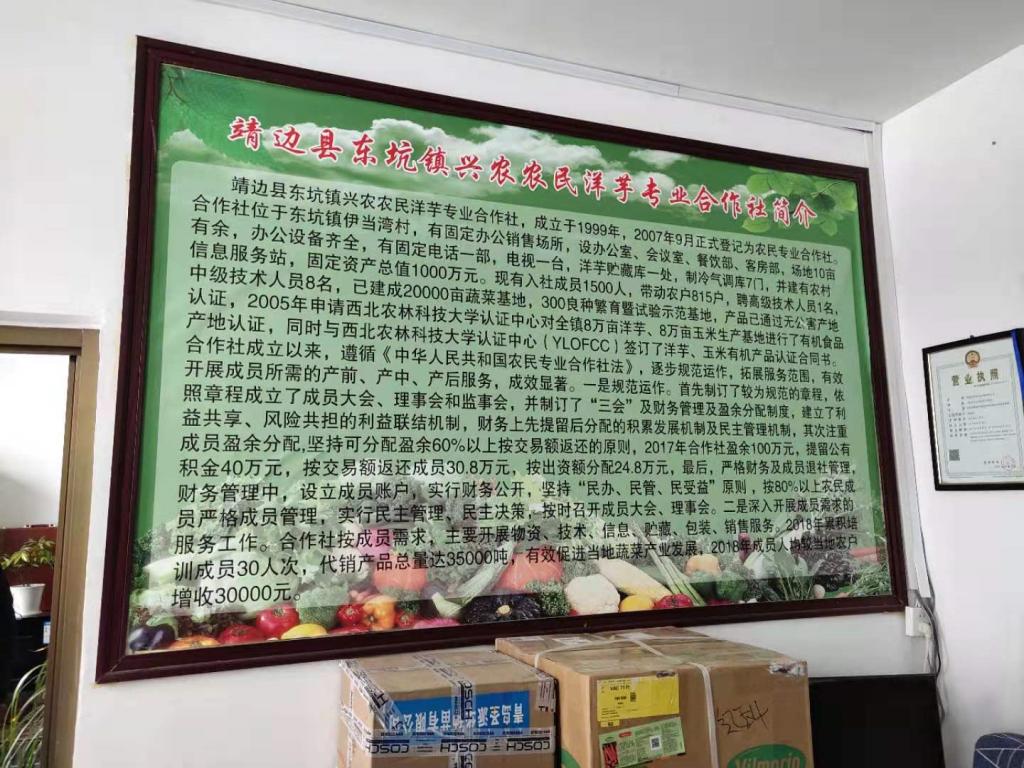 靖边县东坑镇兴农农民洋芋专业合作社简介
靖边县东坑镇兴农农民洋芋专业合作社，成立于1999年，2007年9月正式登记为农民专业合作社。
合作社位于东坑镇伊当湾村，有固定办公销售场所，设办公室、会议室、餐饮部、客房部，场地10亩
有余，办公设备齐全，有固定电话一部，电视一台，洋芋贮藏库一处，制冷气调库7门，并建有农村
信息服务站，固定资产总值1000万元。现有入社成员1500人，带动农户815户，聘高级技术人员1名，
中级技术人员8名，已建成20000亩蔬菜基地，300良种繁育暨试验示范基地，产品已通过无公害产地
认证，2005年申请西北农林科技大学认证中心对全镇8万亩洋芋、8万亩玉米生产基地进行了有机食品
产地认证，同时与西北农林科技大学认证中心（YLOFCC）签订了洋芋、玉米有机产品认证合同书。
合作社成立以来，遵循《中华人民共和国农民专业合作社法》，逐步规范运作，拓展服务范围，有效
开展成员所需的产前、产中、产后服务，成效显著。一是规范运作。首先制订了较为规范的章程，依
照章程成立了成员大会、理事会和监事会，并制订了“三会”及财务管理及盈余分配制度，建立了利
益共享、风险共担的利益联结机制，财务上先提留后分配的积累发展机制及民主管理机制，其次注重
成员盈余分配,坚持可分配盈余60%以上按交易额返还的原则，2017年合作社盈余100万元，提留公有
积金40万元，按交易额返还成员30.8万元，按出资额分配24.8万元，最后，严格财务及成员退社管理，
财务管理中，设立成员账户，实行财务公开，坚持“民办、民管、民受益”原则，按80%以上农民成
员严格成员管理，实行民主管理、民主决策，按时召开成员大会、理事会。二是深入开展成员需求的
服务工作。合作社按成员需求，主要开展物资、技术、信息、贮藏、包装、销售服务。2018年累积培
训成员30人次，代销产品总量达35000吨，有效促进当地蔬菜产业发展，2018年成员人均较当地农户
增收30000元。
营业执照
COSCH
COSCH
Vilmorin